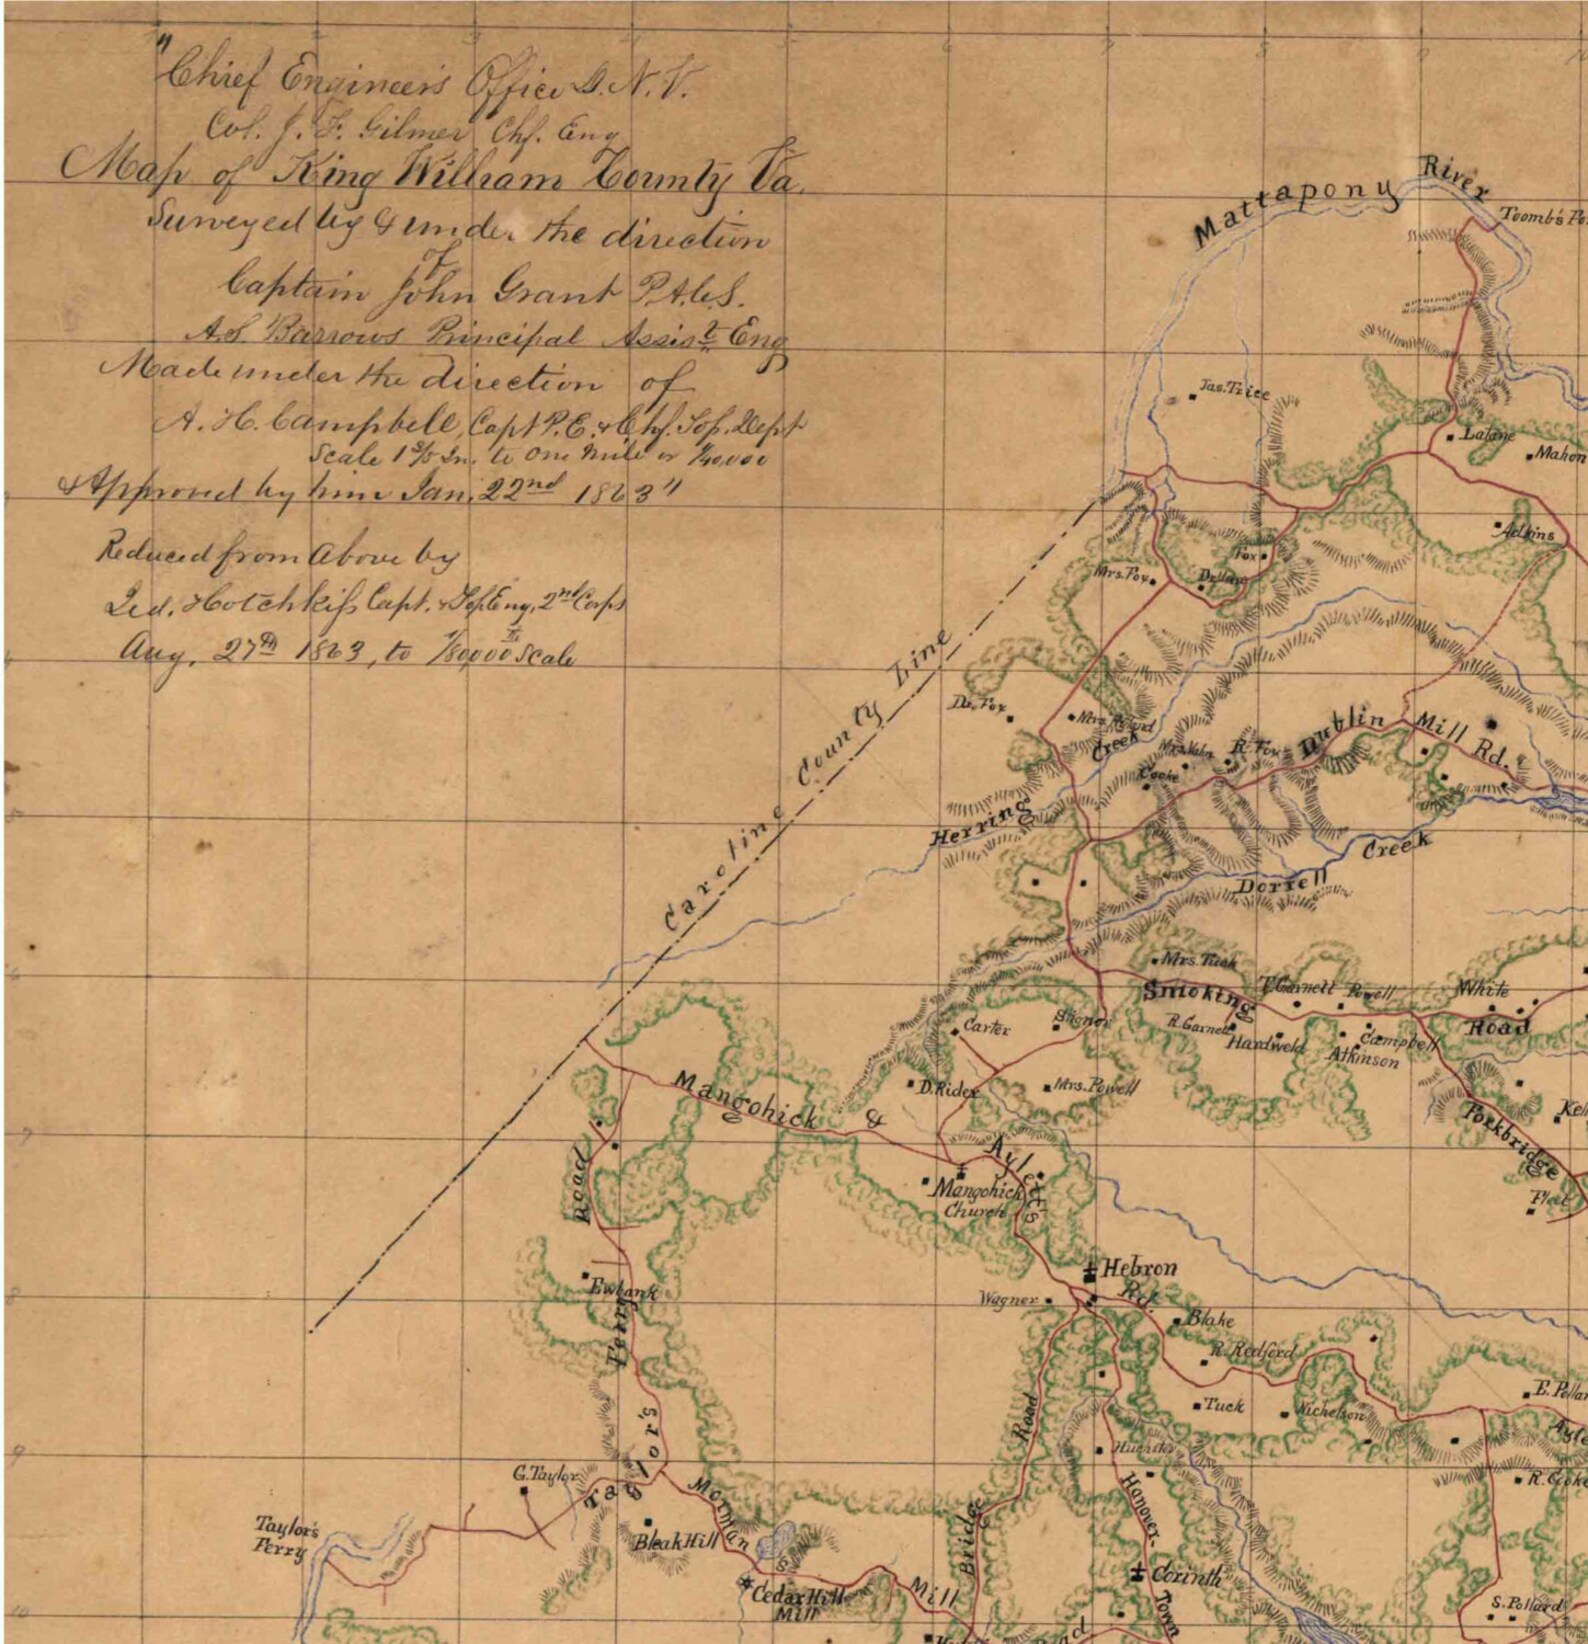 "Chief Engineer's Office D.N.V.
Col. J. F. Gilmer Chf. Eng
Map of King William County Va.
Surveyed by & under the direction
of
Captain John Grant P.A.C.S.
A.S. Barrows Principal Assist Eng
Made under the direction of
A. H. Campbell, Capt P.E. & Chf. Top. Dept
Scale 1 3/5 In. to one mile or 1/40,000
& Approved by him Jan. 22nd 1863"
Reduced from Above by
Jed. Hotchkiss Capt. & Top Eng. 2nd Corps
Aug. 27th 1863, to 1/80000 Scale
Mattapony River
Toomb's
Jas. Trice
Latane
Mahon
Adkins
Fox
Mrs. Fox
Caroline County Line
Dr. Fox
Mrs.
Herring Creek
R. Fox
Cooke
Dublin Mill Rd.
Dorrell Creek
Mrs. Tuck
Smoking Road
T. Garnett
Powell
White
R. Garnett
Hardweld
Campbell
Atkinson
Carter
D. Rider
Mrs. Powell
Forkbridge
Fleet
Mangohick & Aylett's Rd.
Mangohick
Church
Hebron
Wagner
Blake
R. Redford
Tuck
Nichelson
E. Pollar
R. Cooke
Ewbank
Taylor's Ferry Road
G. Taylor
Taylor's
Ferry
Bleak Hill
Morman's Mill
Cedar Hill
Mill
Bridge Road
Hanover Town
Corinth
S. Pollard
7
8
9
4
5
6
7
8
9
10